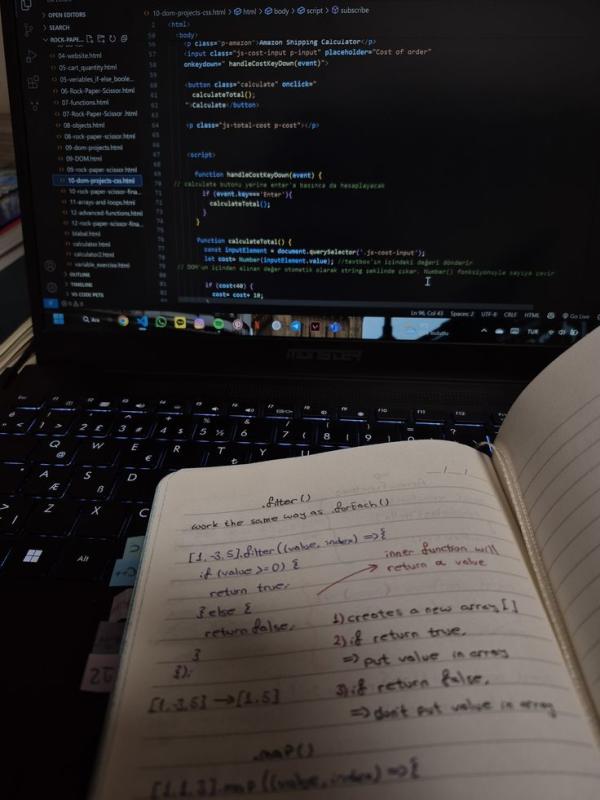 OPEN EDITORS
SEARCH
ROCK-PAPE...
04-website.html
05-cart_quantity.html
05-variables_if-else_boole...
06-Rock-Paper-Scissor.html
07-functions.html
07-Rock-Paper-Scissor.html
08-objects.html
08-rock-paper-scissor.html
09-dom-projects.html
09-DOM.html
09-rock-paper-scissor.html
10-dom-projects-css.html
10-rock-paper-scissor-fina...
11-arrays-and-loops.html
12-advanced-functions.html
12-rock-paper-scissor-fina...
blabal.html
calculator.html
calculator2.html
variable_exercise.html
OUTLINE
TIMELINE
VS CODE PETS
10-dom-projects-css.html > html > body > script > subscribe
<html>
<body>
<p class="p-amazon">Amazon Shipping Calculator</p>
<input class="js-cost-input p-input" placeholder="Cost of order"
onkeydown=" handleCostKeyDown(event)">
<button class="calculate" onclick="
calculateTotal();
">Calculate</button>
<p class="js-total-cost p-cost"></p>
<script>
function handleCostKeyDown(event) {
// calculate butonu yerine enter'a basınca da hesaplayacak
if (event.key==='Enter'){
calculateTotal();
}
}
function calculateTotal() {
const inputElement = document.querySelector('.js-cost-input');
let cost= Number(inputElement.value); //textbox'ın içindeki değeri döndürür
// DOM'un içinden alınan değer otomatik olarak string şeklinde çıkar. Number() fonksiyonuyla sayıya çevir
if (cost<40) {
cost= cost+ 10;
Ln 96, Col 43 Spaces: 2 UTF-8 CRLF HTML Go Live
Ara
TUR
MONSTER
Q W E R T
@ €
A S D
Æ ß
Z X C
Alt
.filter()
work the same way as .forEach()
[1,-3,5].filter((value, index) => {
if (value >= 0) {
return true;
} else {
return false,
}
});
[1,-3,5] → [1,5]
inner function will
return a value
1) creates a new array []
2) if return true,
=> put value in array
3) if return false,
=> don't put value in array
.map()
[1,1,3].map((value, index) => {
22